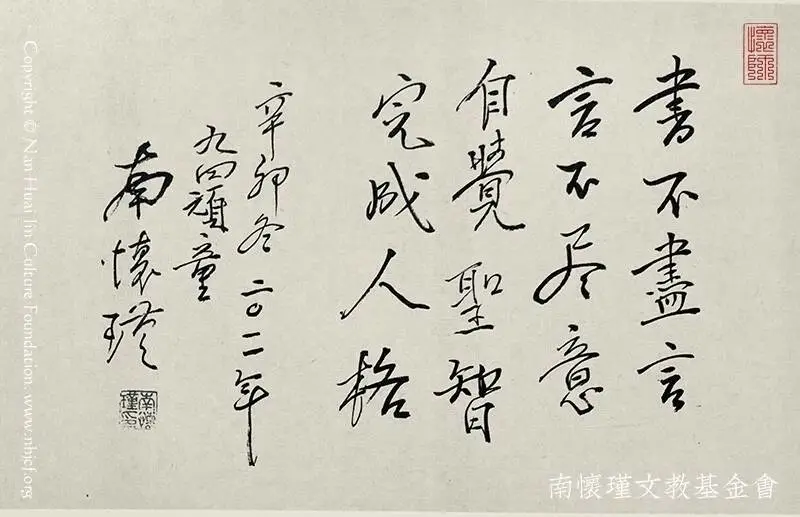 懷師
書不盡言
言不尽意
自覺聖智
完成人格
辛卯冬 二〇一一年
九四頑童
南懷瑾
南懷瑾印
南懷瑾文教基金會
Copyright © Nan Huai Jin Culture Foundation. www.nhjcf.org